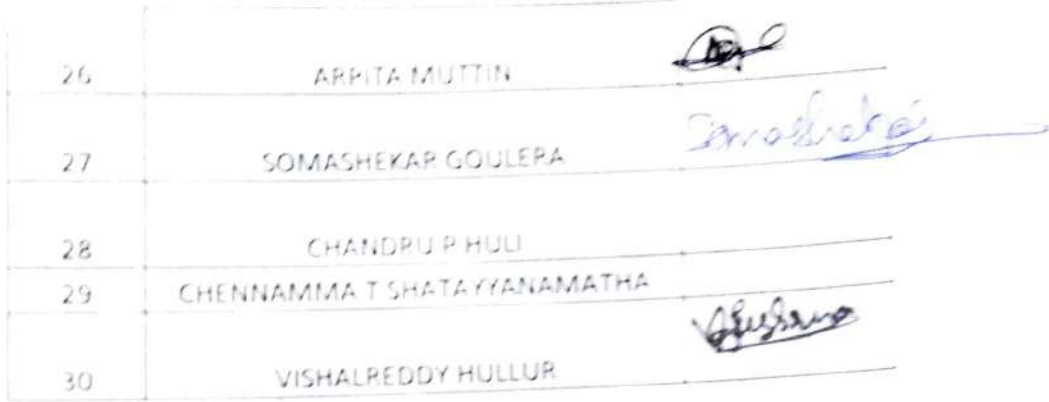 26 ARPITA MUTTIN
27 SOMASHEKAR GOULERA Somashekar
28 CHANDRU P HULI
29 CHENNAMMA T SHATAYYANAMATHA
30 VISHALREDDY HULLUR